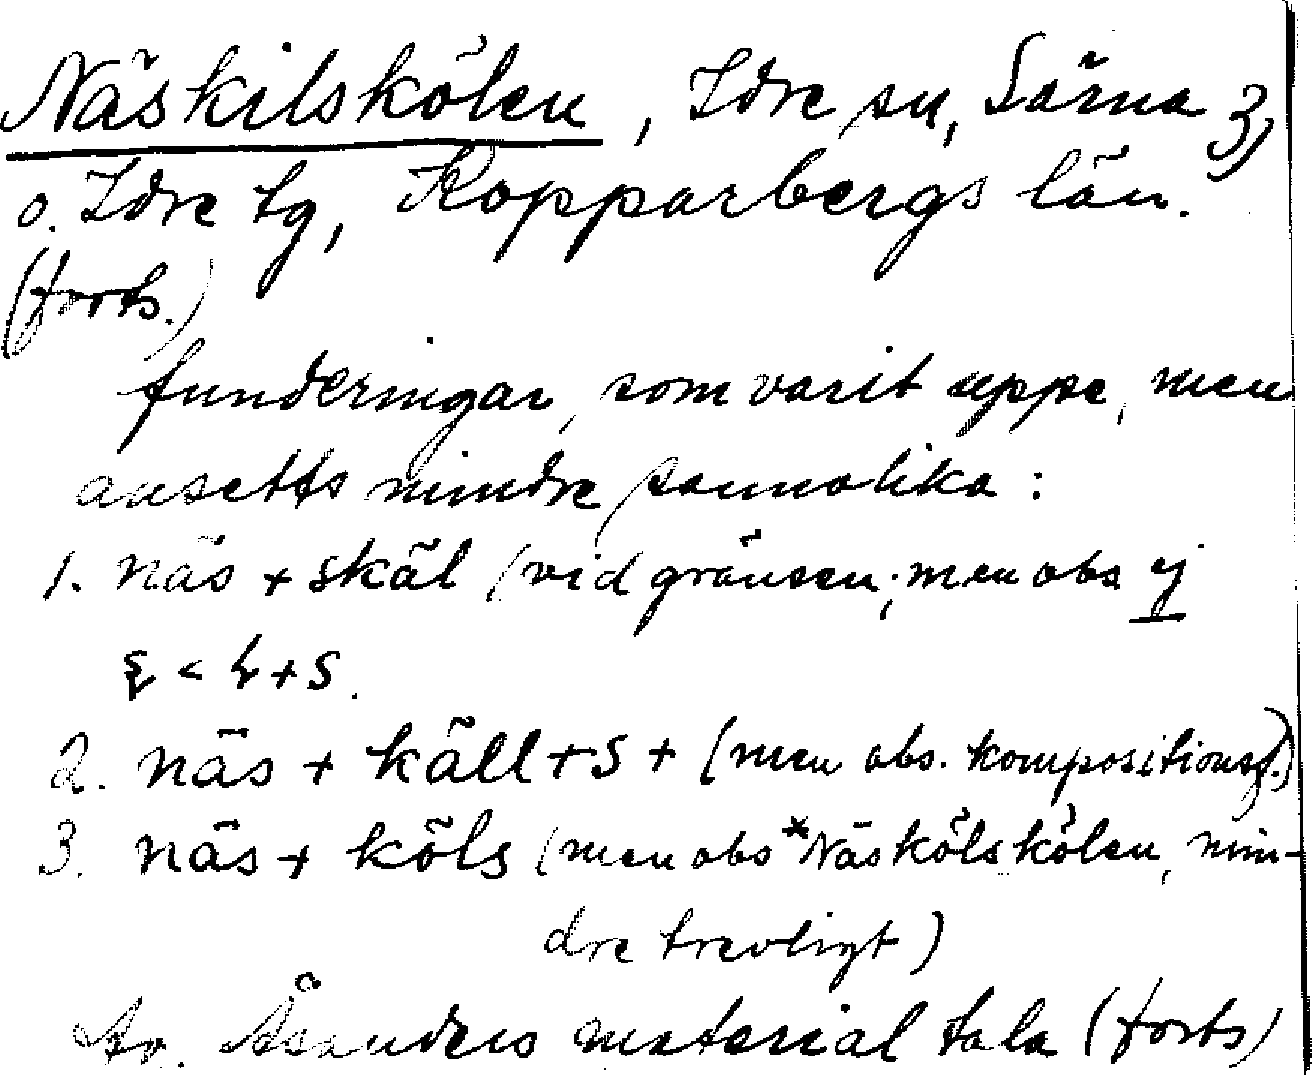 Näskilskölen, Idre sn, Särna
o. Idre tg, Kopparbergs län.
(forts.)
funderingar, som varit uppe, men
ansetts mindre sannolika:
1. näs + skäl (vid gränsen; men obs ej
< + s.
2. näs + käll + s + (men obs. kompositionsf.)
3. näs + köls (men obs *Näskölskölen, min-
dre trevligt)
Av. Åsanders material tala (forts)